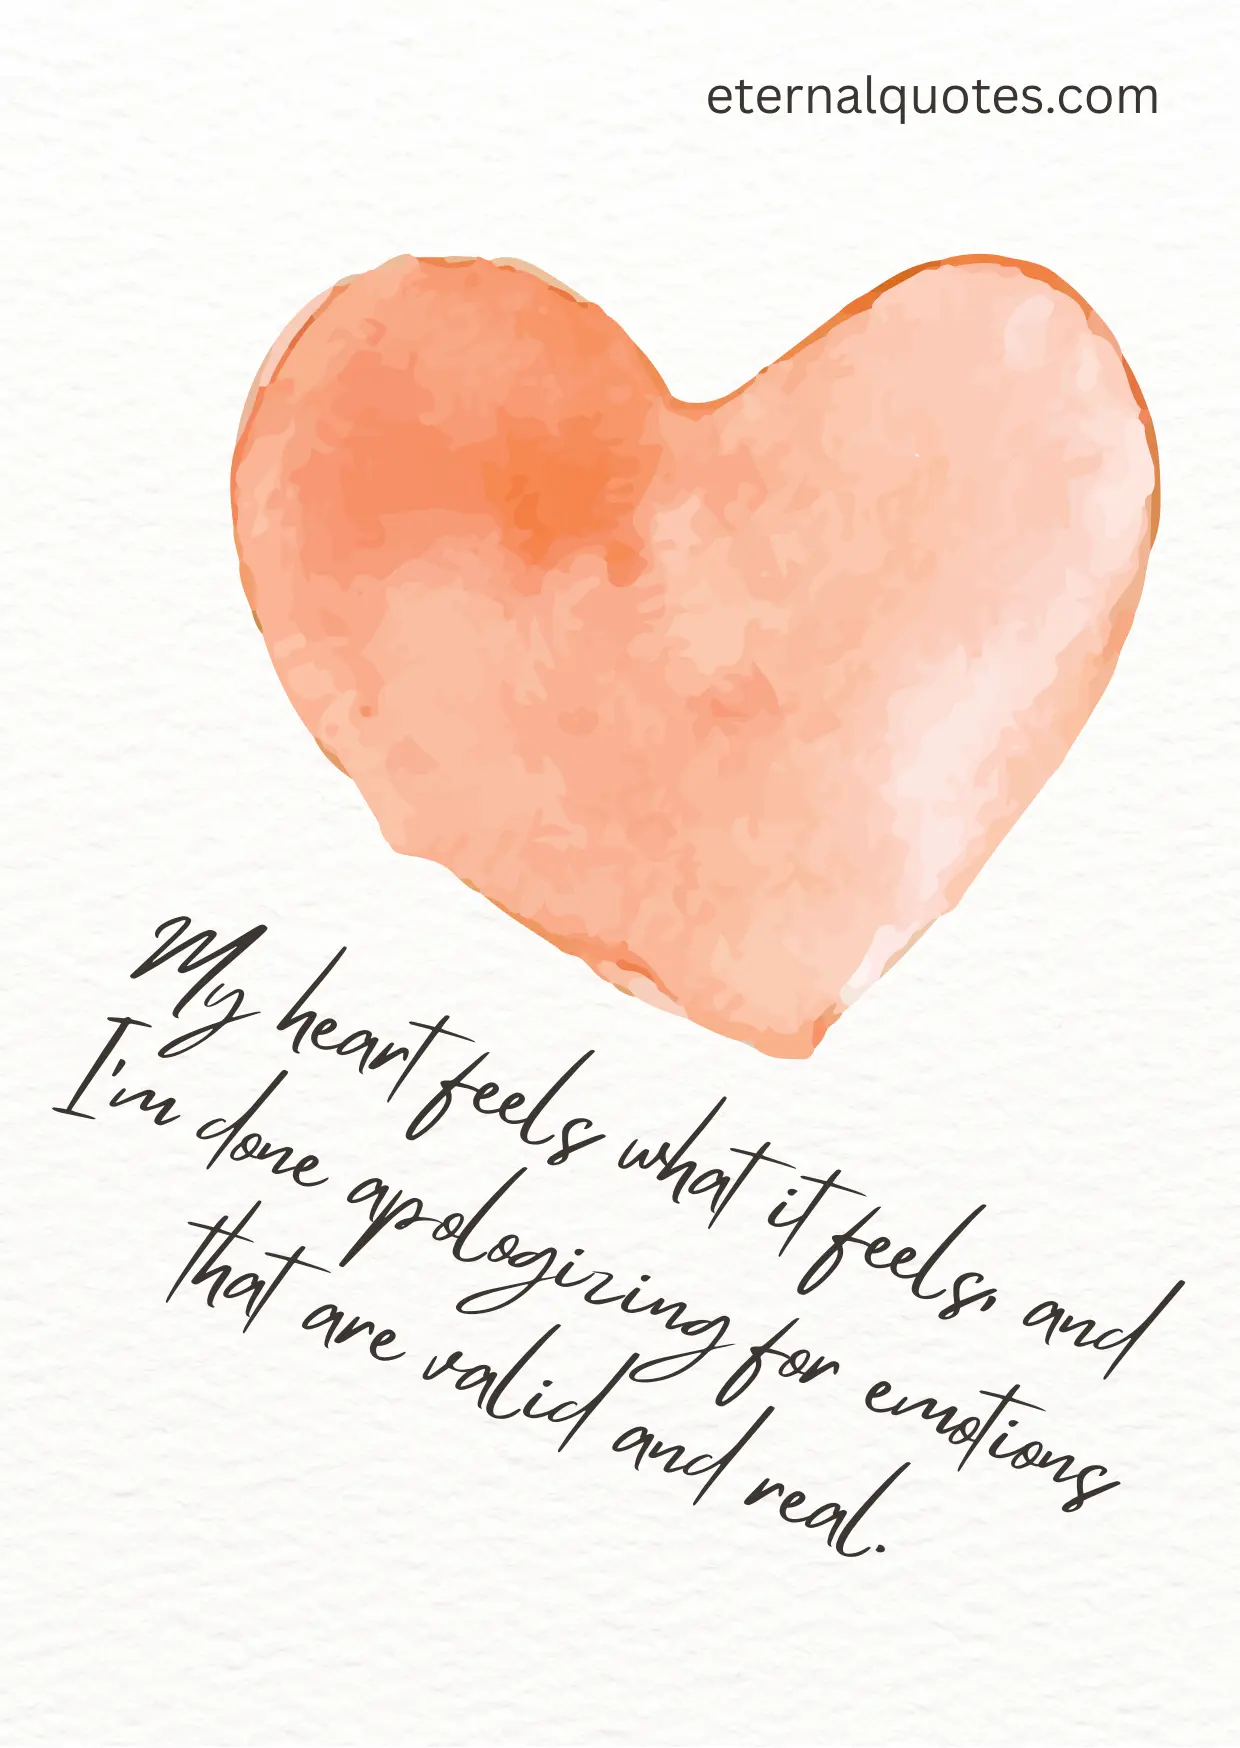 eternalquotes.com
My heart feels what it feels, and
I'm done apologizing for emotions
that are valid and real.